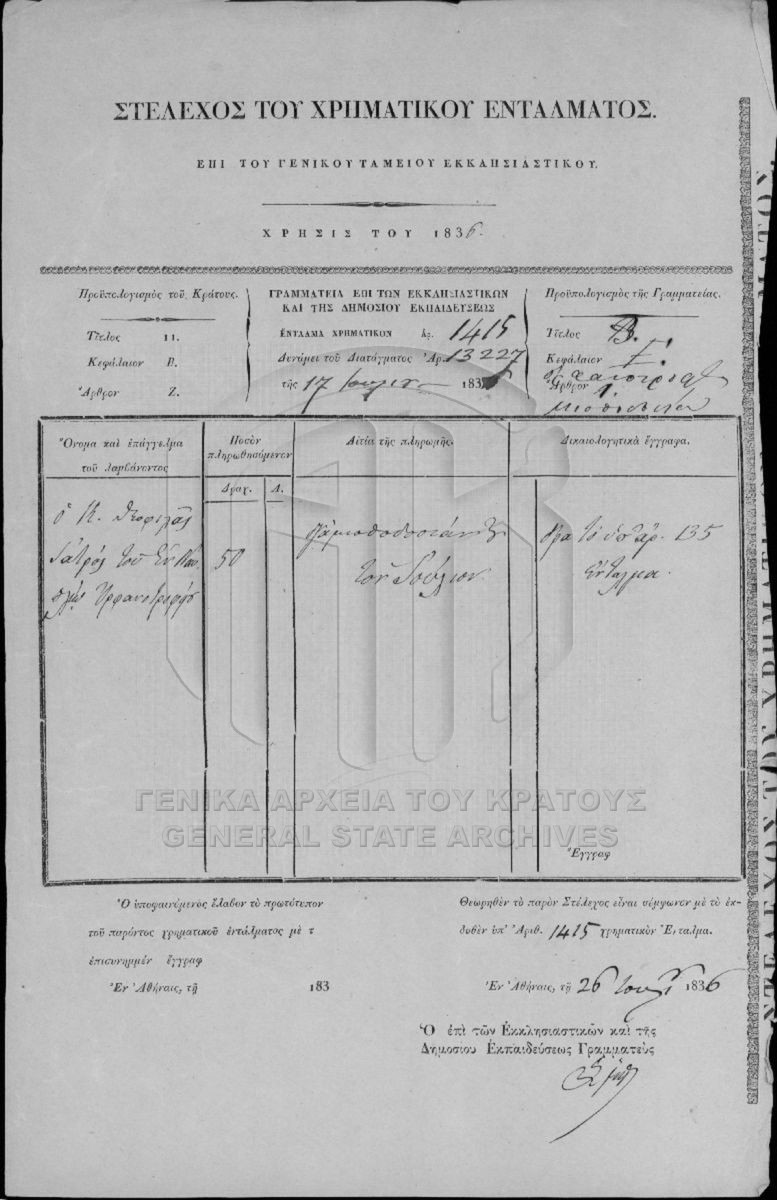 ΣΤΕΛΕΧΟΣ ΤΟΥ ΧΡΗΜΑΤΙΚΟΥ ΕΝΤΑΛΜΑΤΟΣ.
ΕΠΙ ΤΟΥ ΓΕΝΙΚΟΥ ΤΑΜΕΙΟΥ ΕΚΚΛΗΣΙΑΣΤΙΚΟΥ.
ΧΡΗΣΙΣ ΤΟΥ 1836.
Προϋπολογισμὸς τοῦ Κράτους.
Τίτλος 11.
Κεφάλαιον Β.
Ἄρθρον Ζ.
ΓΡΑΜΜΑΤΕΙΑ ΕΠΙ ΤΩΝ ΕΚΚΛΗΣΙΑΣΤΙΚΩΝ
ΚΑΙ ΤΗΣ ΔΗΜΟΣΙΟΥ ΕΚΠΑΙΔΕΥΣΕΩΣ
ΕΝΤΑΛΜΑ ΧΡΗΜΑΤΙΚΟΝ 1415
Δυνάμει τοῦ Διατάγματος Ἀρ. 13227
τῆς 17 1836
Προϋπολογισμὸς τῆς Γραμματείας.
Τίτλος Β.
Κεφάλαιον
Ἄρθρον 1.
Ὄνομα καὶ ἐπάγγελμα
τοῦ λαμβάνοντος
Ποσὸν
πληρωθησόμενον
Δραχ. Λ.
Αἰτία τῆς πληρωμῆς.
Δικαιολογητικὰ ἔγγραφα.
ὁ Κ.
Ἰατρὸς τοῦ ἐν
Ὀρφανοτροφείου
50
τὸν Ἰούλιον.
διὰ τὸ ὑπ' ἀρ. 135
ἔνταλμα.
Ἔγγραφ
ΓΕΝΙΚΑ ΑΡΧΕΙΑ ΤΟΥ ΚΡΑΤΟΥΣ
GENERAL STATE ARCHIVES
Ὁ ὑποφαινόμενος ἔλαβον τὸ πρωτότυπον
τοῦ παρόντος χρηματικοῦ ἐντάλματος μὲ τ
ἐπισυνημμέν ἔγγραφ
Ἐν Ἀθήναις, τῇ 183
Θεωρηθὲν τὸ παρὸν Στέλεχος εἶναι σύμφωνον μὲ τὸ ἐκ-
δοθὲν ὑπ' Ἀριθ. 1415 χρηματικὸν Ἔνταλμα.
Ἐν Ἀθήναις, τῇ 26 1836
Ὁ ἐπὶ τῶν Ἐκκλησιαστικῶν καὶ τῆς
Δημοσίου Ἐκπαιδεύσεως Γραμματεὺς